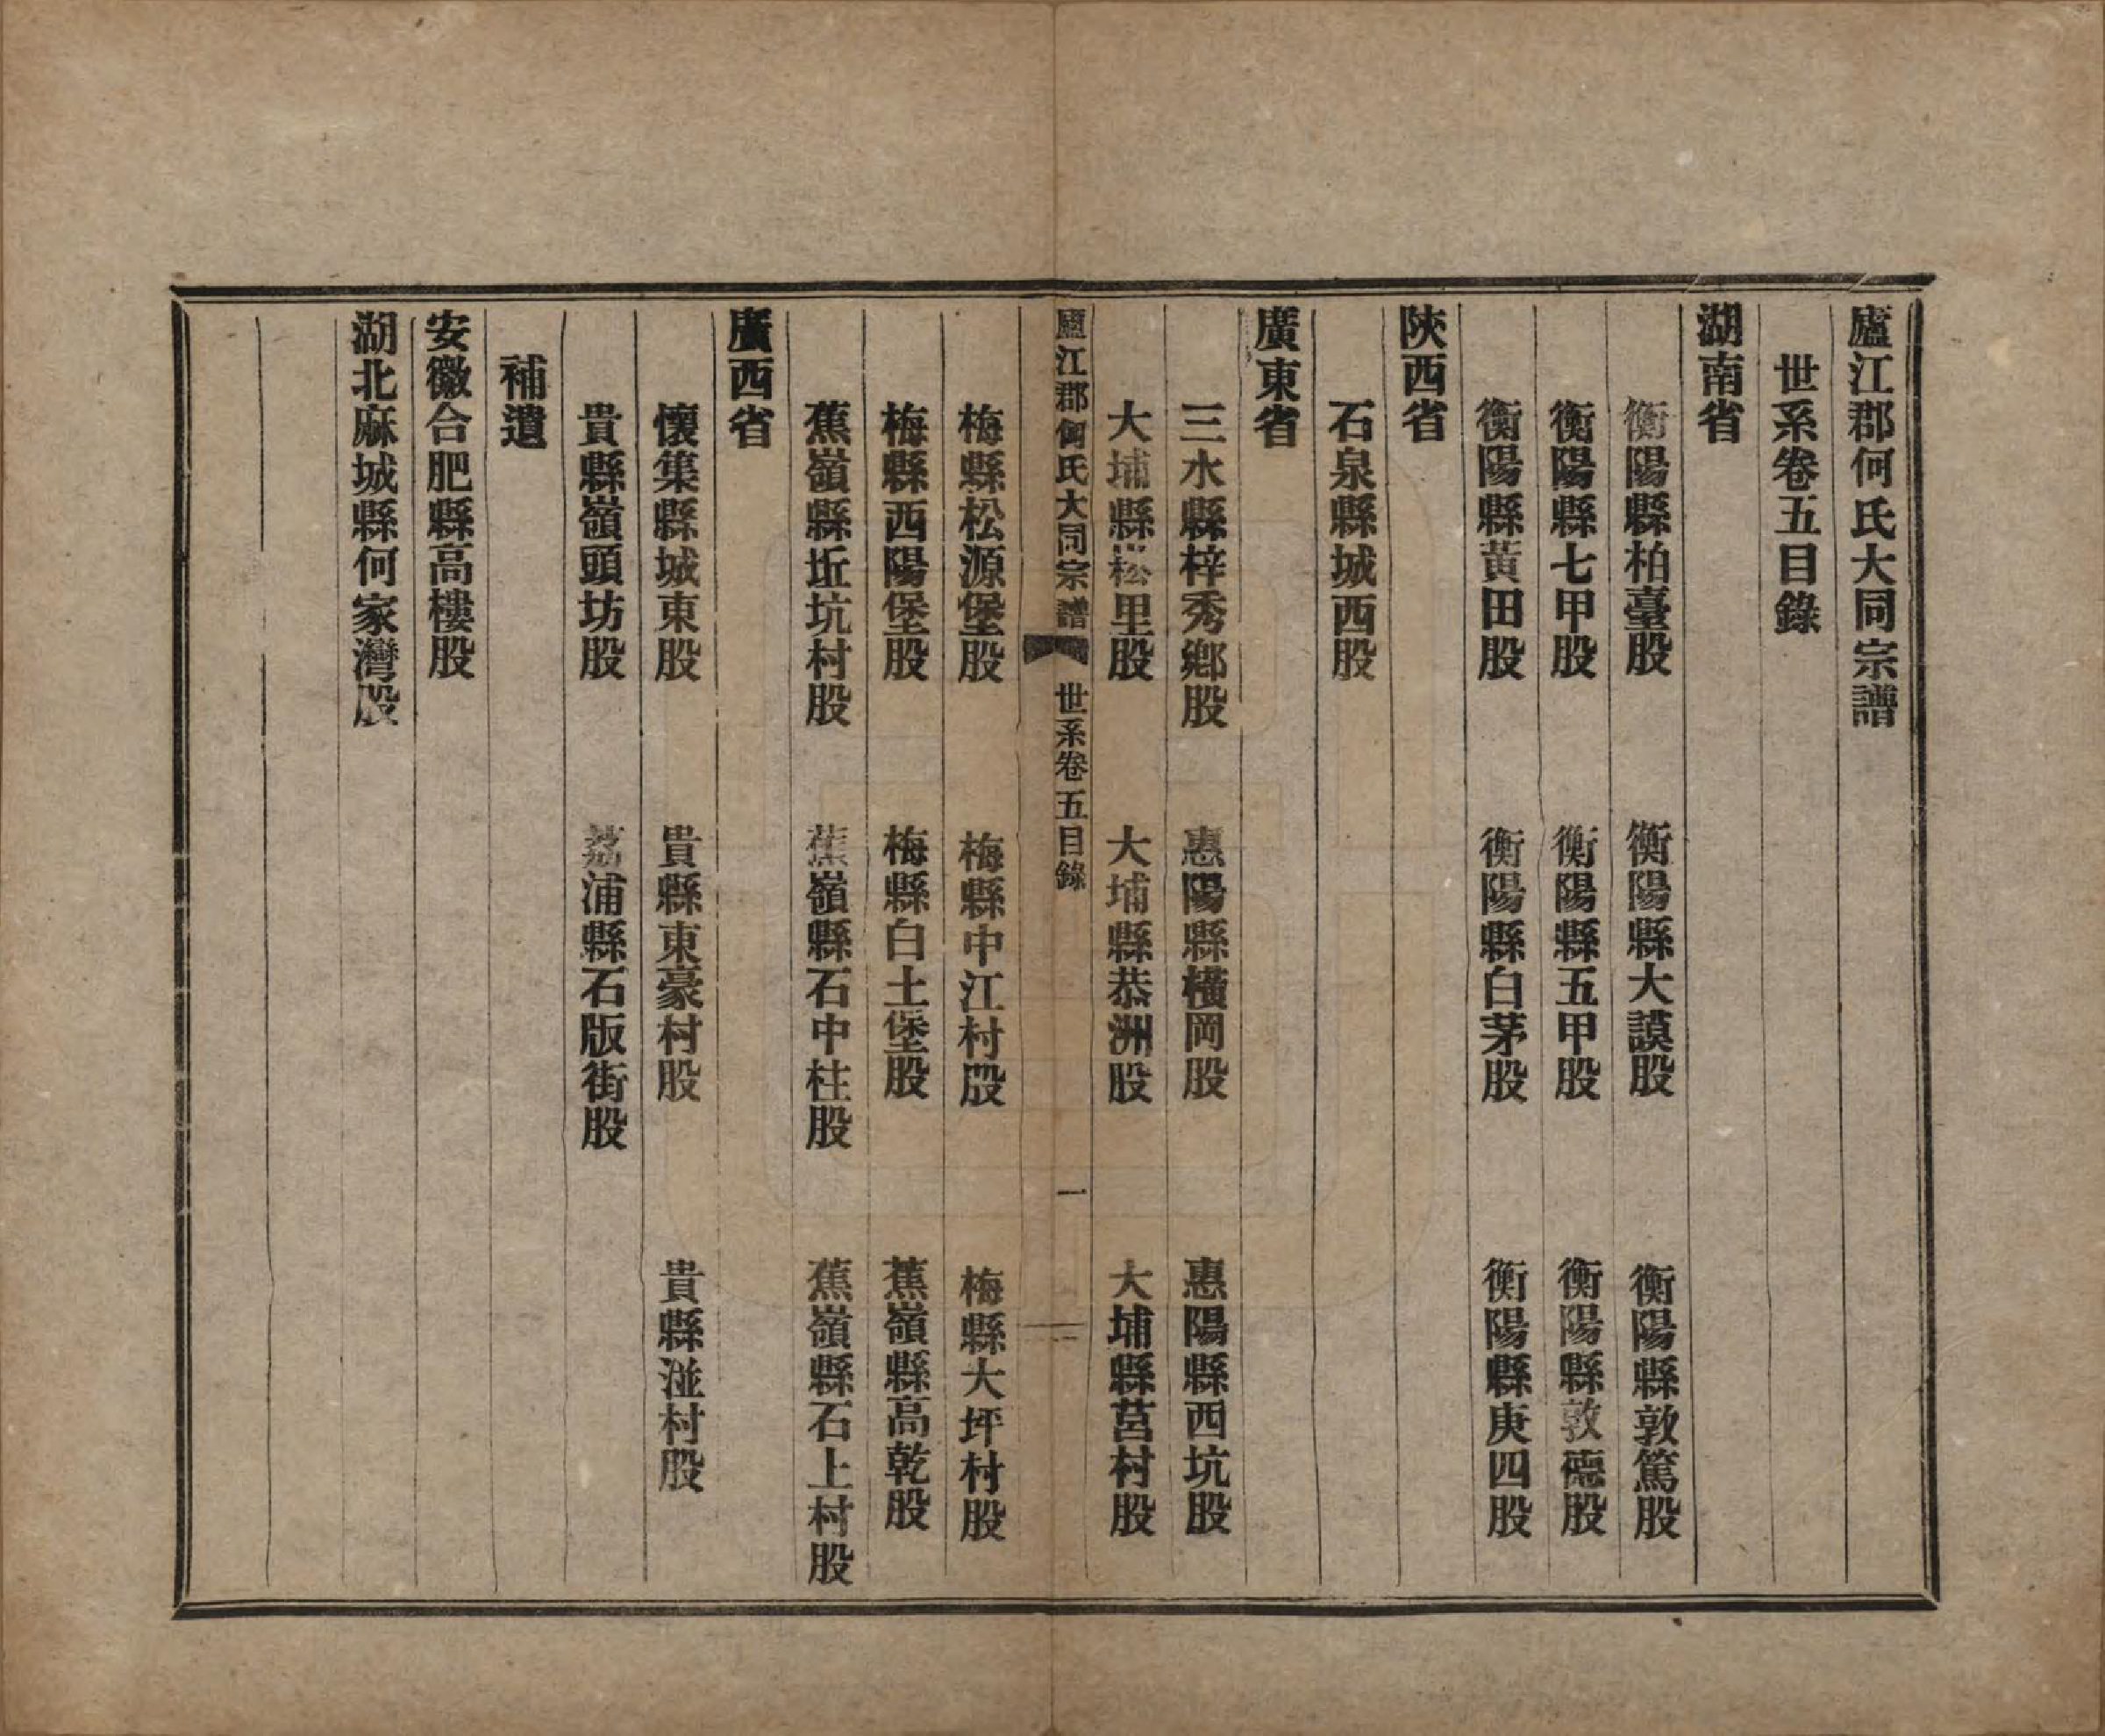 廬江郡何氏大同宗譜
世系卷五目錄
湖南省
衡陽縣柏臺股　衡陽縣大謨股　衡陽縣敦篤股
衡陽縣七甲股　衡陽縣五甲股　衡陽縣敦德股
衡陽縣黃田股　衡陽縣白茅股　衡陽縣庚四股
陝西省
石泉縣城西股
廣東省
三水縣梓秀鄉股　惠陽縣橫岡股　惠陽縣西坑股
大埔縣崧里股　大埔縣恭洲股　大埔縣莒村股
廬江郡何氏大同宗譜　世系卷五目錄　一
梅縣松源堡股　梅縣中江村股　梅縣大坪村股
梅縣西陽堡股　梅縣白土堡股　蕉嶺縣高乾股
蕉嶺縣坵坑村股　蕉嶺縣石中柱股　蕉嶺縣石上村股
廣西省
懷集縣城東股　貴縣東豪村股　貴縣湴村股
貴縣嶺頭坊股　荔浦縣石版街股
補遺
安徽合肥縣高樓股
湖北麻城縣何家灣股